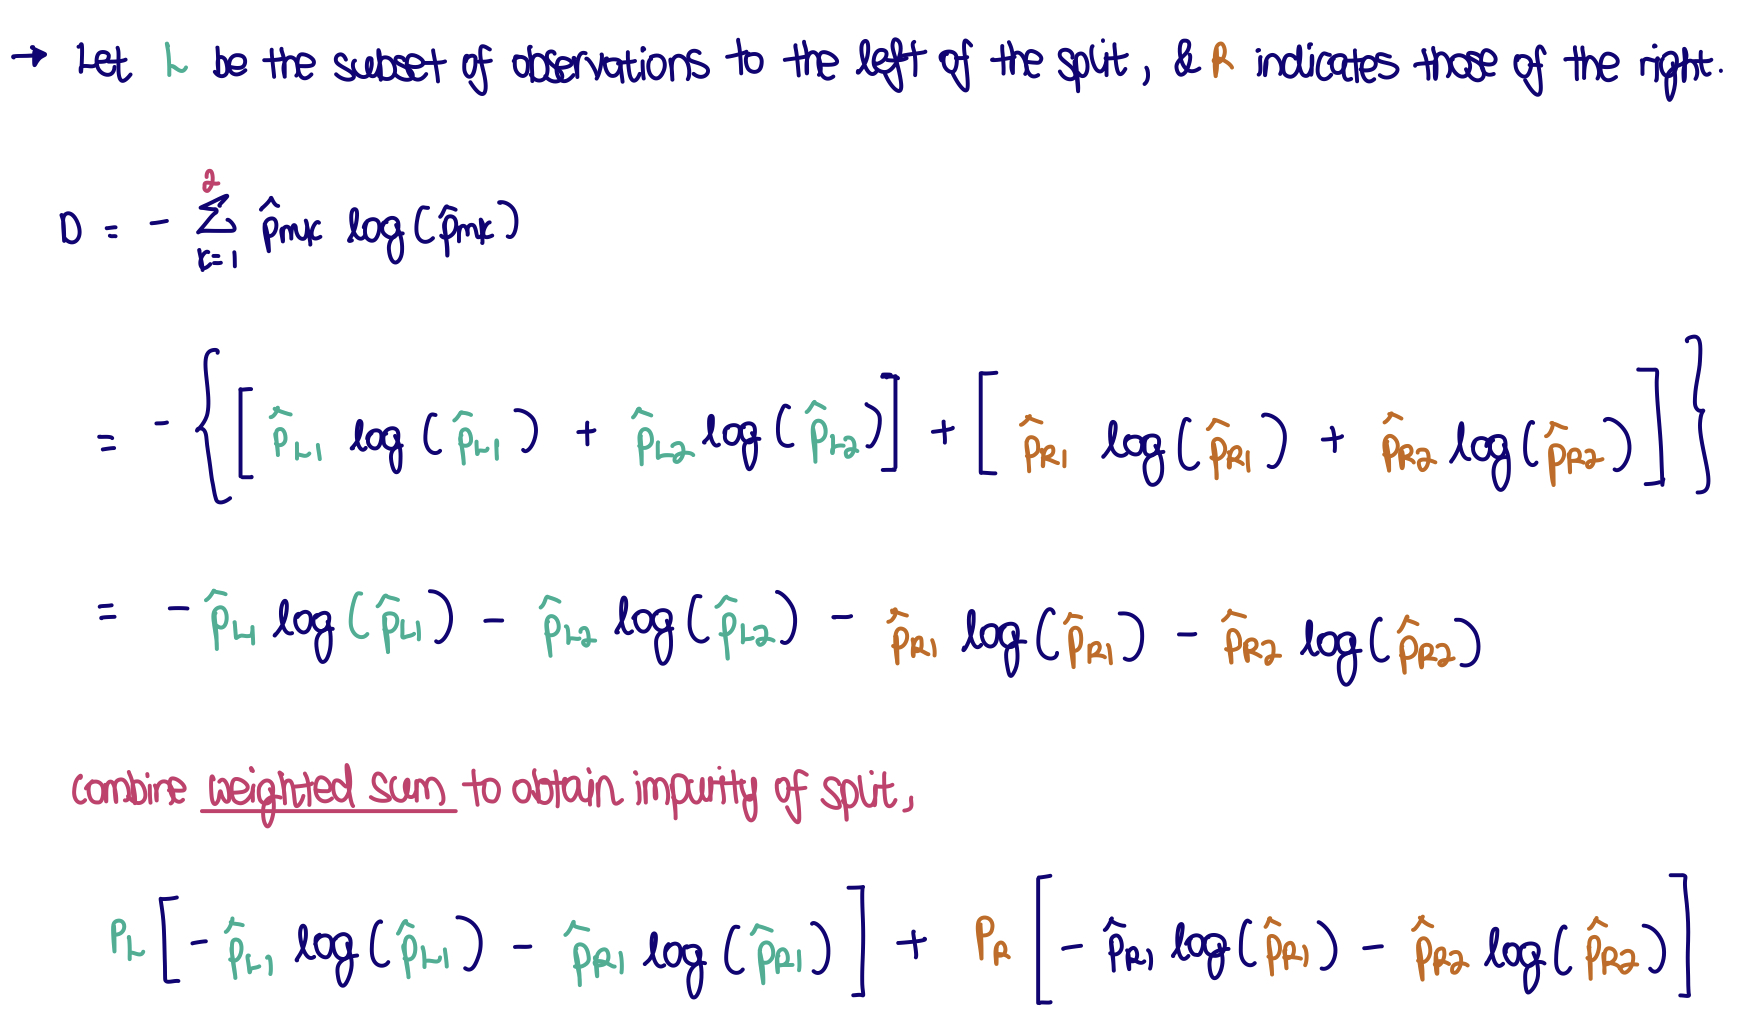 → Let L be the subset of observations to the left of the split, & R indicates those of the right.
D = - ∑_{k=1}^{2} p̂_{mk} log(p̂_{mk})
= - { [ p̂_{L1} log(p̂_{L1}) + p̂_{L2} log(p̂_{L2}) ] + [ p̂_{R1} log(p̂_{R1}) + p̂_{R2} log(p̂_{R2}) ] }
= - p̂_{L1} log(p̂_{L1}) - p̂_{L2} log(p̂_{L2}) - p̂_{R1} log(p̂_{R1}) - p̂_{R2} log(p̂_{R2})
combine weighted sum to obtain impurity of split,
P_L [ - p̂_{L1} log(p̂_{L1}) - p̂_{R1} log(p̂_{R1}) ] + P_R [ - p̂_{R1} log(p̂_{R1}) - p̂_{R2} log(p̂_{R2}) ]